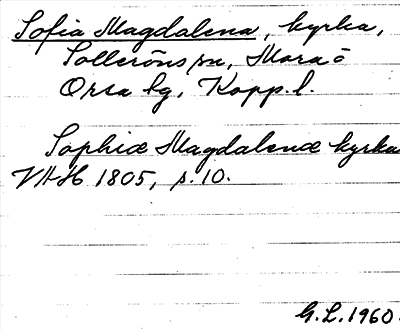 Sofia Magdalena, kyrka,
Solleröns sn, Mora o
Orsa tg, Kopp. l.
Sophiæ Magdalenæ kyrka
VAH 1805, s. 10.
G.L. 1960.